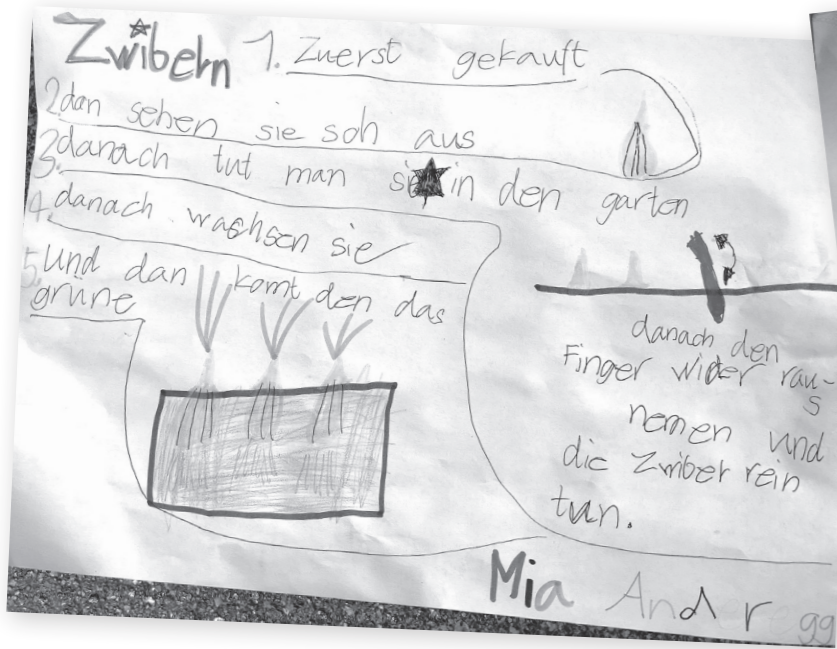 Zwibern
1. Zuerst gekauft
2. dan sehen sie soh aus
3. danach tut man sie in den garten
4. danach wachsen sie
5. und dan komt den das
grüne
danach den
Finger wider rau-
s
nemen und
die Zwiber rein
tun.
Mia Anderegg